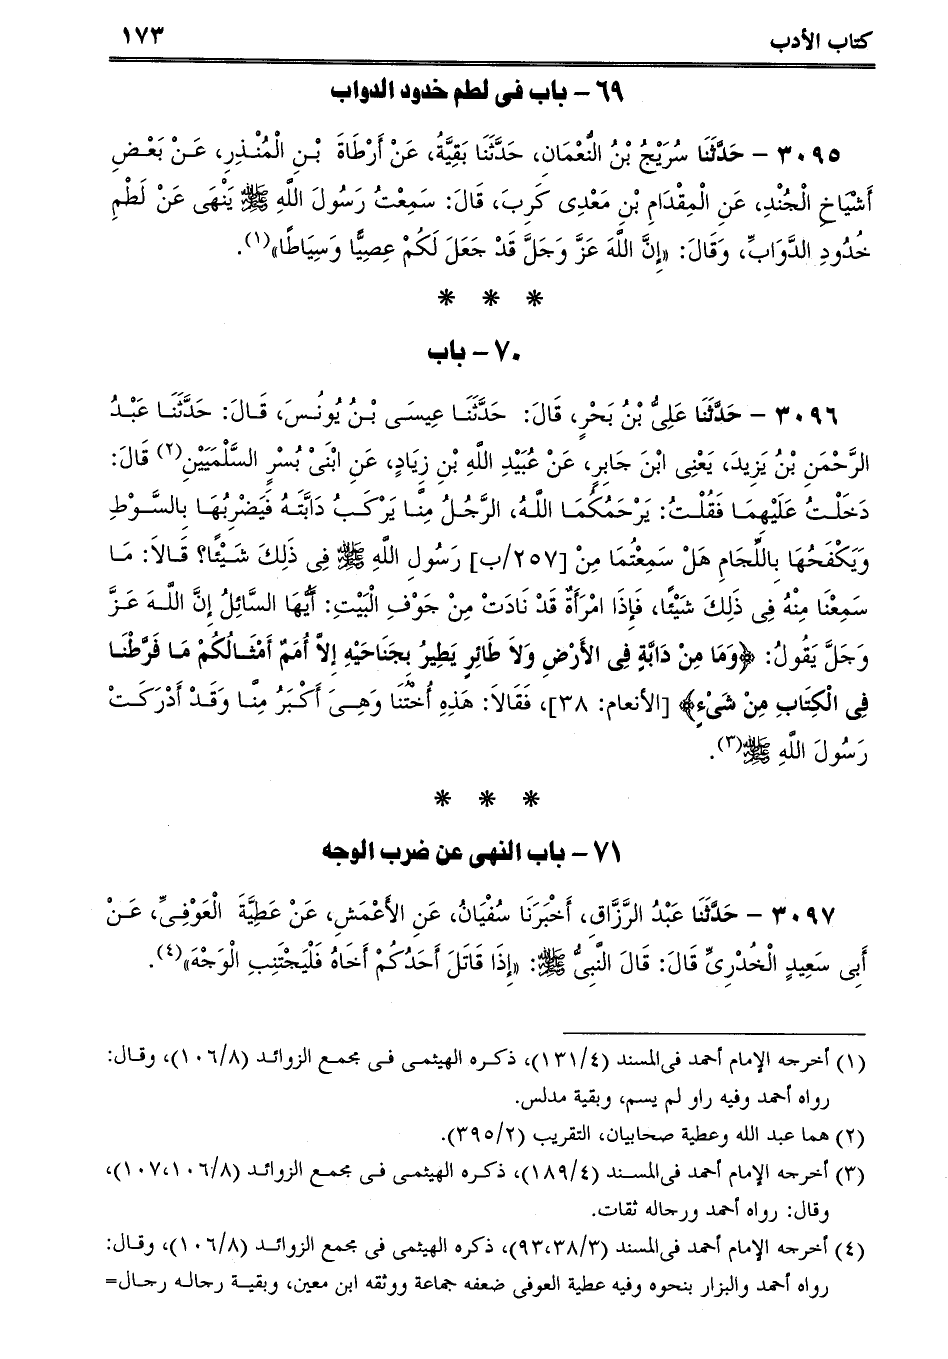 كتاب الأدب ١٧٣
٦٩ – باب فى لطم خدود الدواب
٣٠٩٥ – حَدَّثَنَا سُرَيْجُ بْنُ النُّعْمَانِ، حَدَّثَنَا بَقِيَّةُ، عَنْ أَرْطَاةَ بْنِ الْمُنْذِرِ، عَنْ بَعْضِ
أَشْيَاخِ الْجُنْدِ، عَنِ الْمِقْدَامِ بْنِ مَعْدِى كَرِبَ، قَالَ: سَمِعْتُ رَسُولَ اللَّهِ ﷺ يَنْهَى عَنْ لَطْمِ
خُدُودِ الدَّوَابِّ، وَقَالَ: «إِنَّ اللَّهَ عَزَّ وَجَلَّ قَدْ جَعَلَ لَكُمْ عِصِيًّا وَسِيَاطًا»(١).
* * *
٧٠ – باب
٣٠٩٦ – حَدَّثَنَا عَلِىُّ بْنُ بَحْرٍ، قَالَ: حَدَّثَنَا عِيسَى بْنُ يُونُسَ، قَالَ: حَدَّثَنَا عَبْدُ
الرَّحْمَنِ بْنُ يَزِيدَ، يَعْنِى ابْنَ جَابِرٍ، عَنْ عُبَيْدِ اللَّهِ بْنِ زِيَادٍ، عَنِ ابْنَىْ بُسْرٍ السُّلَمِيَيْنِ(٢) قَالَ:
دَخَلْتُ عَلَيْهِمَا فَقُلْتُ: يَرْحَمُكُمَا اللَّهُ، الرَّجُلُ مِنَّا يَرْكَبُ دَابَّتَهُ فَيَضْرِبُهَا بِالسَّوْطِ
وَيَكْفَحُهَا بِاللِّجَامِ هَلْ سَمِعْتُمَا مِنْ [٢٥٧/ب] رَسُولِ اللَّهِ ﷺ فِى ذَلِكَ شَيْئًا؟ قَالاَ: مَا
سَمِعْنَا مِنْهُ فِى ذَلِكَ شَيْئًا، فَإِذَا امْرَأَةٌ قَدْ نَادَتْ مِنْ جَوْفِ الْبَيْتِ: أَيُّهَا السَّائِلُ إِنَّ اللَّهَ عَزَّ
وَجَلَّ يَقُولُ: ﴿وَمَا مِنْ دَابَّةٍ فِى الأَرْضِ وَلاَ طَائِرٍ يَطِيرُ بِجَنَاحَيْهِ إِلاَّ أُمَمٌ أَمْثَالُكُمْ مَا فَرَّطْنَا
فِى الْكِتَابِ مِنْ شَىْءٍ﴾ [الأنعام: ٣٨]، فَقَالاَ: هَذِهِ أُخْتُنَا وَهِىَ أَكْبَرُ مِنَّا وَقَدْ أَدْرَكَتْ
رَسُولَ اللَّهِ ﷺ(٣).
* * *
٧١ – باب النهى عن ضرب الوجه
٣٠٩٧ – حَدَّثَنَا عَبْدُ الرَّزَّاقِ، أَخْبَرَنَا سُفْيَانُ، عَنِ الأَعْمَشِ، عَنْ عَطِيَّةَ الْعَوْفِىِّ، عَنْ
أَبِى سَعِيدٍ الْخُدْرِىِّ قَالَ: قَالَ النَّبِىُّ ﷺ: «إِذَا قَاتَلَ أَحَدُكُمْ أَخَاهُ فَلْيَجْتَنِبِ الْوَجْهَ»(٤).
(١) أخرجه الإمام أحمد فى المسند (١٣١/٤)، ذكره الهيثمى فى مجمع الزوائد (١٠٦/٨)، وقال:
رواه أحمد وفيه راو لم يسم، وبقية مدلس.
(٢) هما عبد الله وعطية صحابيان، التقريب (٣٩٥/٢).
(٣) أخرجه الإمام أحمد فى المسند (١٨٩/٤)، ذكره الهيثمى فى مجمع الزوائد (١٠٧،١٠٦/٨)،
وقال: رواه أحمد ورجاله ثقات.
(٤) أخرجه الإمام أحمد فى المسند (٩٣،٣٨/٣)، ذكره الهيثمى فى مجمع الزوائد (١٠٦/٨)، وقال:
رواه أحمد والبزار بنحوه وفيه عطية العوفى ضعفه جماعة ووثقه ابن معين، وبقية رجاله رجال=